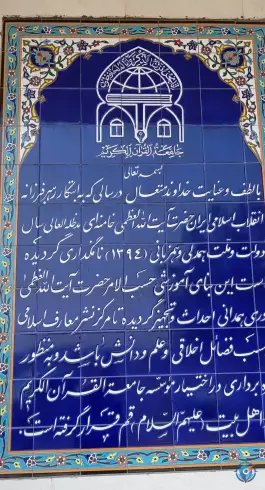 جامعة القرآن الکریم
بسمه تعالی
با لطف و عنایت خداوند متعال در سالی که به ابتکار رهبر فرزانه
انقلاب اسلامی ایران حضرت آیت الله العظمی خامنه‌ای مدظله العالی سال
دولت و ملت همدلی و همزبانی (۱۳۹۴) نامگذاری گردیده
است این بنای آموزشی حسب الامر حضرت آیت الله العظمی
نوری همدانی احداث و تجهیز گردیده تا مرکز نشر معارف اسلامی
کسب فضائل اخلاقی و علم و دانش باشد و به منظور
بهره برداری در اختیار مؤسسه جامعة القرآن الکریم
و اهل بیت (علیهم السلام) قم قرار گرفته است.